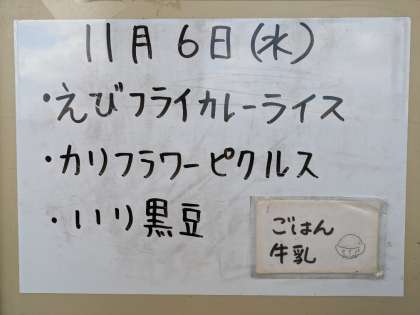 11月6日(水)
・えびフライカレーライス
・カリフラワーピクルス
・いり黒豆
ごはん
牛乳